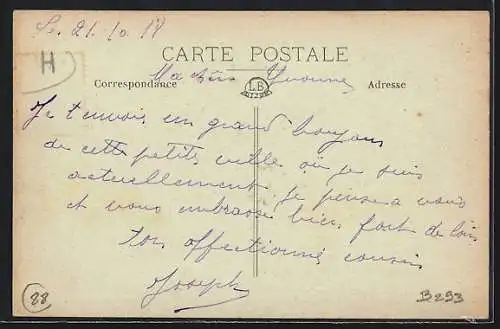 Le 21. 10. 18
H
CARTE POSTALE
Ma chère Yvonne
Correspondance
LB
Adresse
Je t'envoie un grand bonjour
de cette petite ville où je suis
actuellement je pense a vous
et vous embrasse bien fort de loin
ton affectionné cousin
Joseph
28
B293